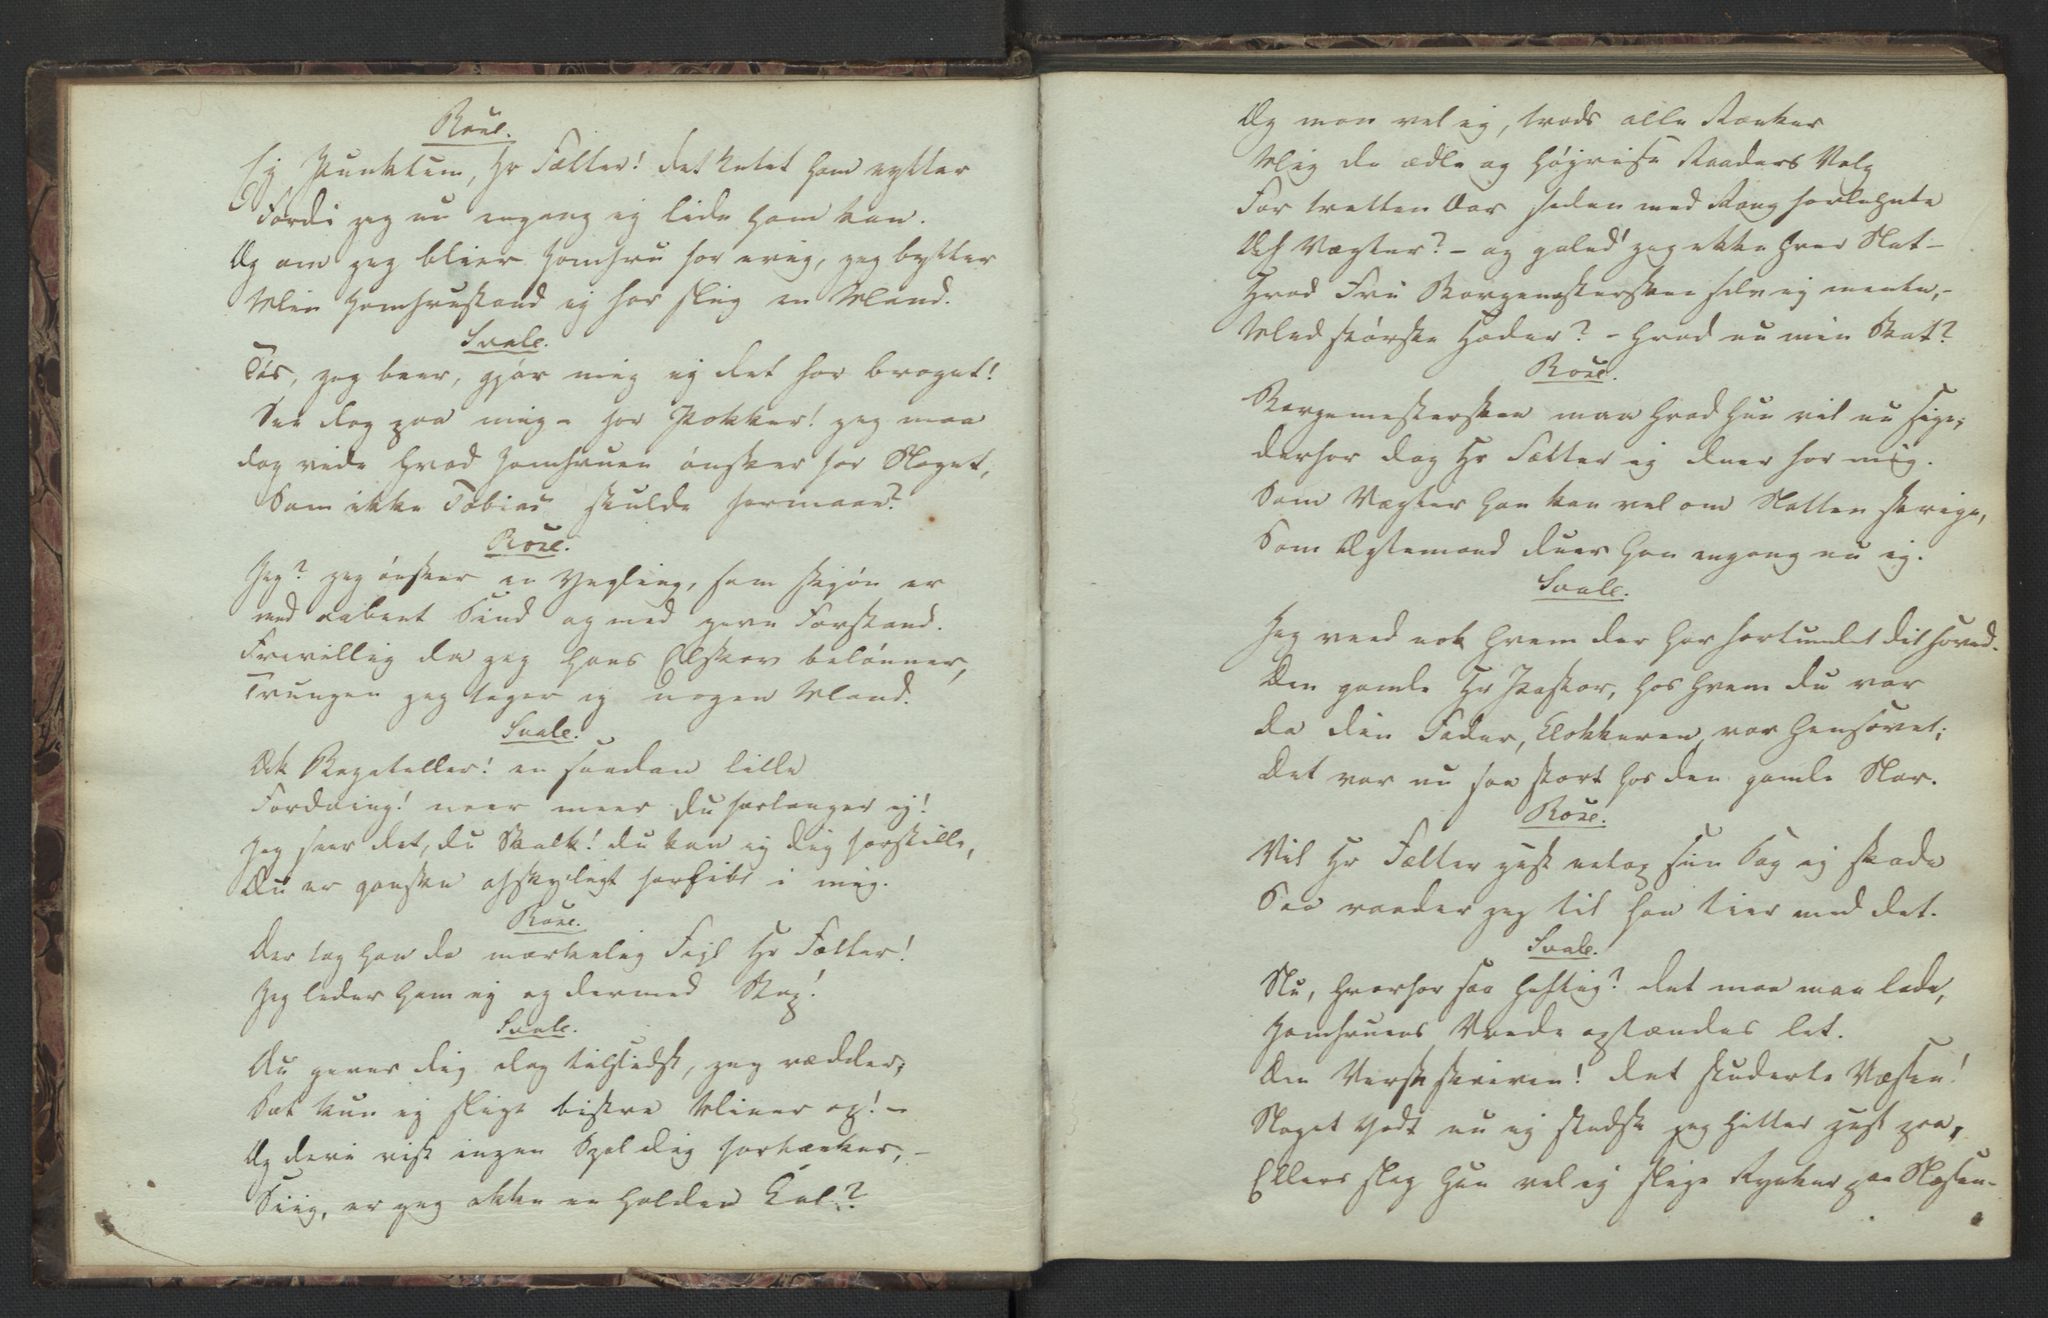 Rose.
Ey Punktum, Hr Fætter! det Intet ham nytter
Fordi jeg nu engang ej lide ham kan.
Og om jeg blier Jomfru for evig, jeg bytter
Min Jomfrustand ej for slig en Mand.
Svale.
Tøs, jeg beer, gjør mig ej det for broget!
See dog paa mig - for Pokker! jeg maa
dog vide hvad Jomfruen ønsker for Noget,
Som ikke Tobias skulde formaae?
Rose.
Jeg? jeg ønsker en Yngling, som skjøn er
med aabent Sind og med gjæv Forstand.
Frivillig da jeg hans Elskov belønner,
Tvungen jeg tager ej nogen Mand.
Svale.
Ak Bagateller! en saadan lille
Fordring! neer meer du forlanger ej!
Jeg seer det, du Skalk! du kan ej dig forstille,
Du er ganske afskyligt forlibt i mig.
Rose.
Der tog han da mærkelig Fejl Hr Fætter!
Jeg lider ham ej og dermed Stop!
Svale.
Du giver dig dog tilsidst, jeg vædder;
Sæt kun ej slige bistre Miner op! -
Og deri vist ingen Sjæl dig fortænker, -
Siig, er jeg ikke en holden Karl?
Og mon vel ej, trods alle Rænker
Mig de ædle og høyvise Raaders Valg
For tretten Aar siden med Rang forlehnte
Af Vægter? - og galed' jeg ikke hver Nat -
Hvad Fru Borgemesterskeen selv ej meente, -
Med stærke Hoder? - hvad nu min Skat?
Rose.
Borgemesterskeen maa hvad hun vil nu sige;
derfor dog Hr Fætter ej duer for mig.
Som Vægter han kan vel om Natten skrige,
Som Ægtemand duer han engang nu ej.
Svale.
Jeg veed nok hvem der har fortumlet dit Hoved.
Den gamle Hr Pastor, hos hvem du var
da din Fader, Klokkeren, var hensovet;
Det var nu saa stort hos den gamle Nar.
Rose.
Vil Hr Fætter just netop sin Sag ej skade
Saa raader jeg til han tier med det.
Svale.
Nu, hvorfor saa heftig? det maa man lade,
Jomfruens Vrede optændes let.
Den Versskriven! det studerte Væsen!
Noget Godt nu ej stedse jeg hitter just paa,
Ellers slog hun vel ej slige Rynker paa Næsen -